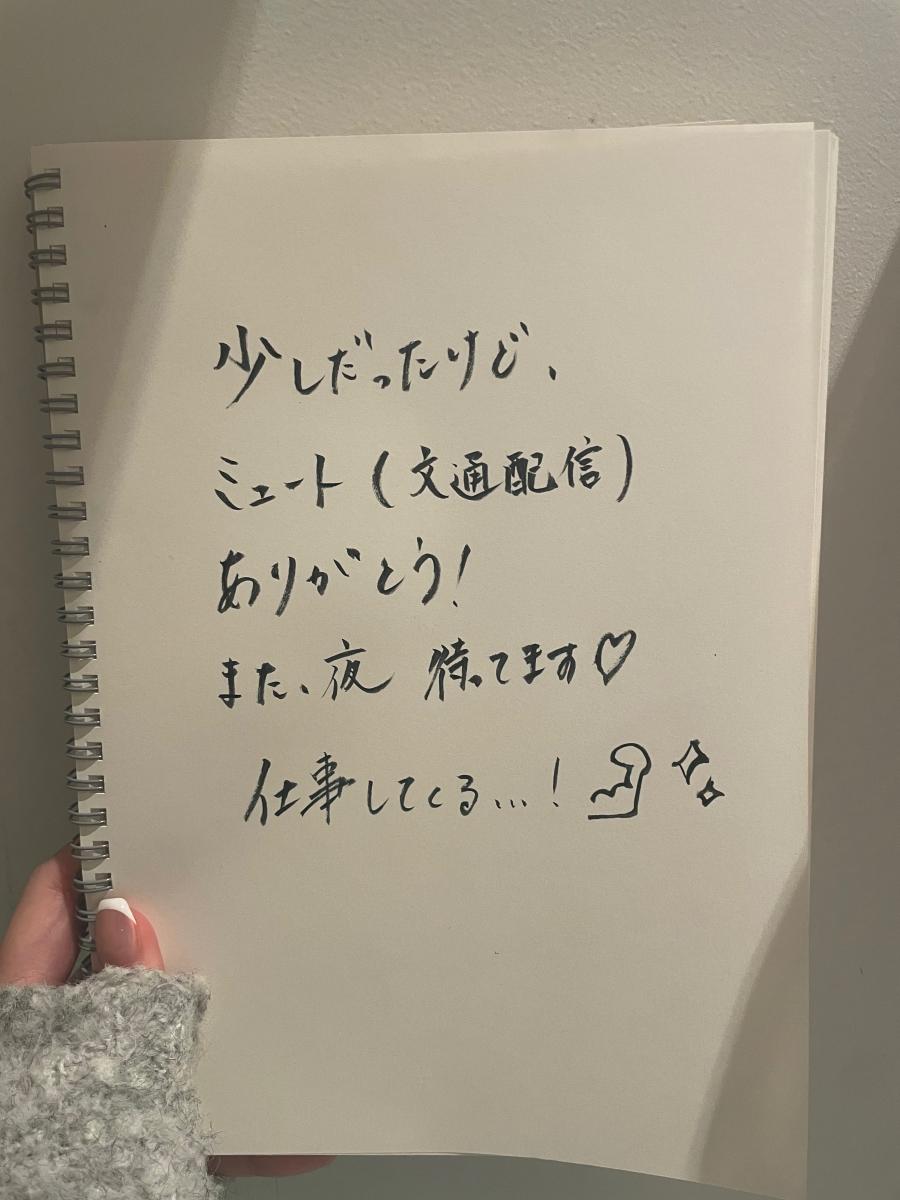 少しだったけど、
ミュート(文通配信)
ありがとう!
また、夜 待ってます♡
仕事してくる...!